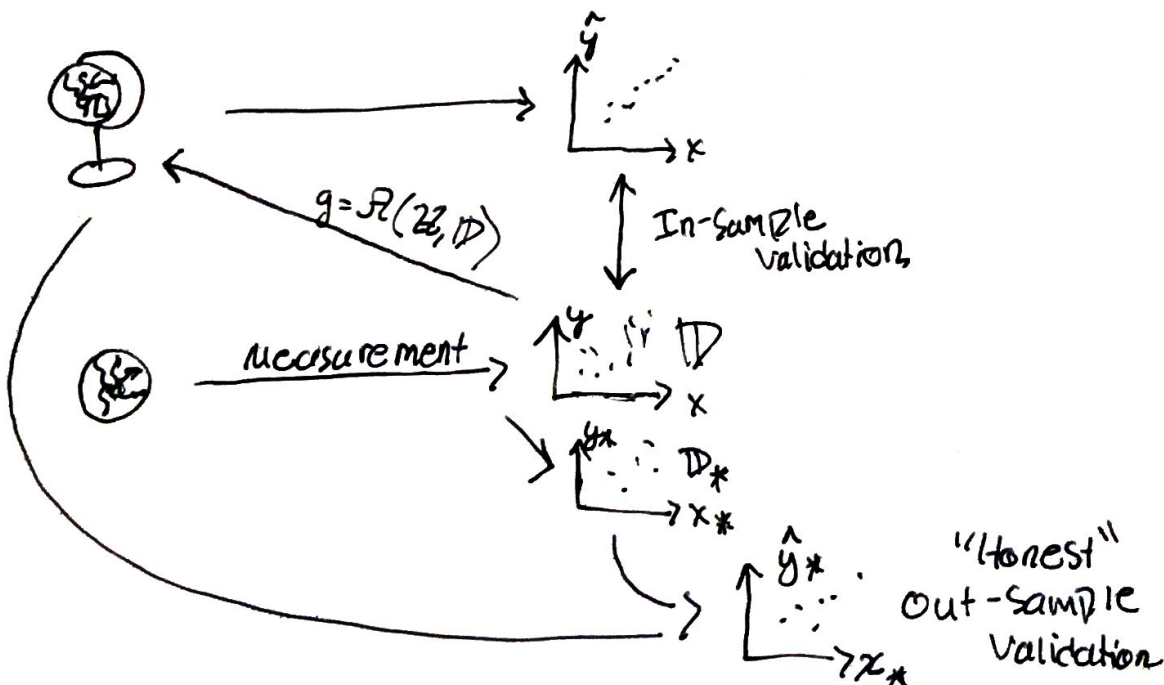 ŷ
x
g = 𝒜(ℋ, 𝔻)
In-sample
validation
y
𝔻
x
measurement
y*
𝔻*
x*
ŷ*
x*
"Honest"
Out-sample
validation